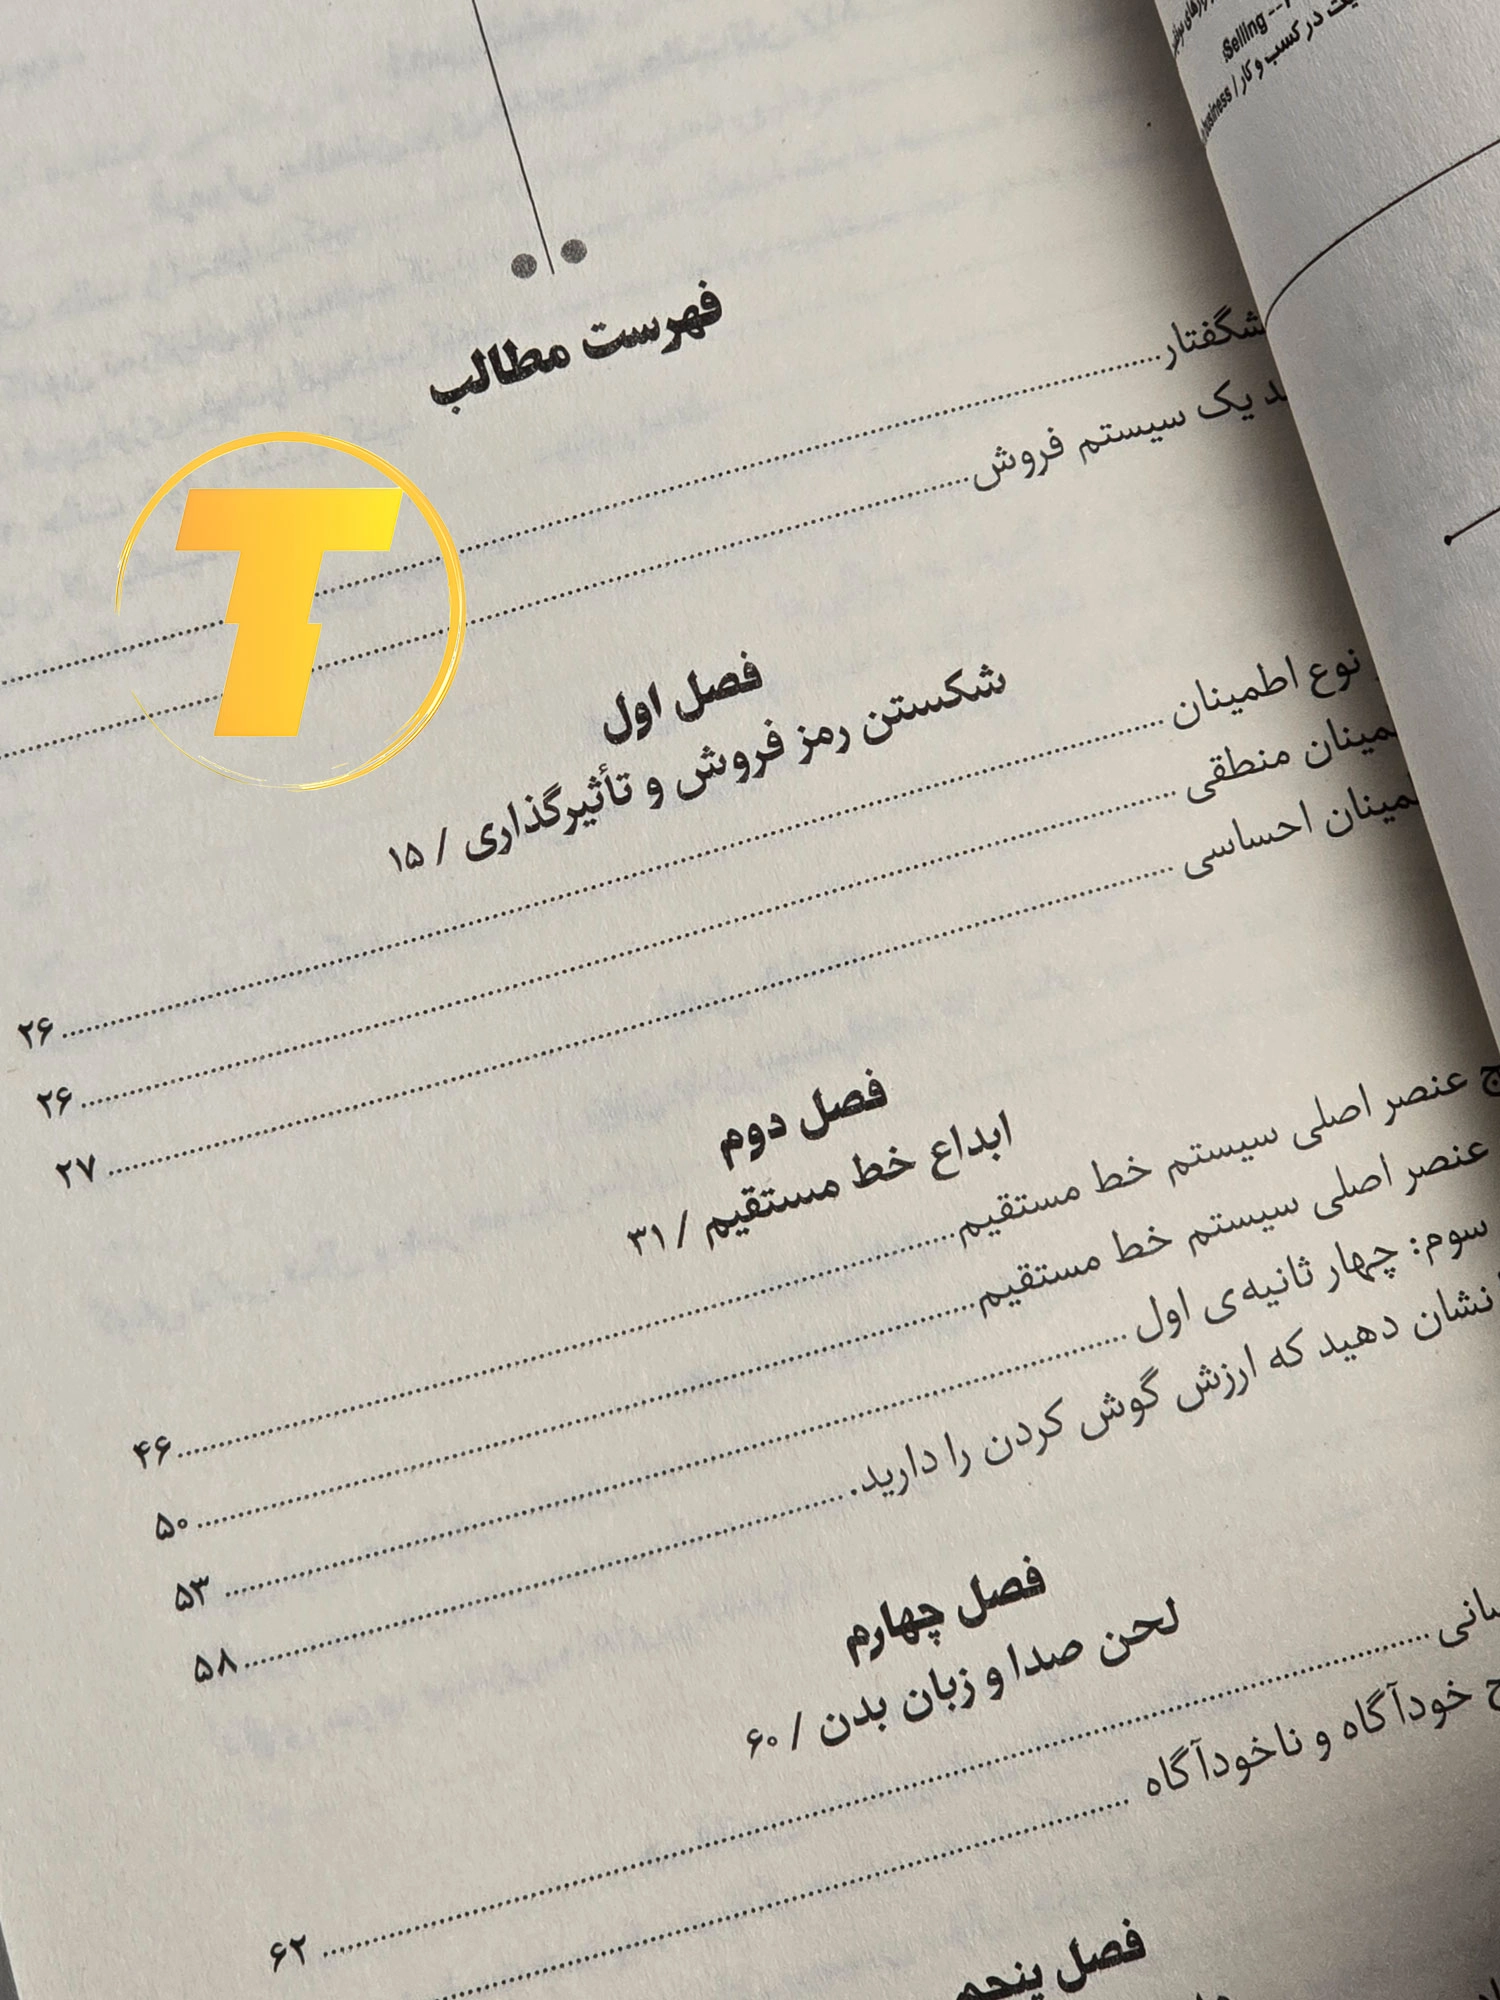 Selling --
در کسب و کار / business
فهرست مطالب
یک سیستم فروش
فصل اول
شکستن رمز فروش و تأثیرگذاری / ۱۵
نوع اطمینان ۲۶
منطقی ۲۶
احساسی ۲۷
فصل دوم
ابداع خط مستقیم / ۳۱
عنصر اصلی سیستم خط مستقیم ۴۶
عنصر اصلی سیستم خط مستقیم ۵۰
سوم: چهار ثانیه‌ی اول ۵۳
نشان دهید که ارزش گوش کردن را دارید. ۵۸
فصل چهارم
لحن صدا و زبان بدن / ۶۰
۶۲
خودآگاه و ناخودآگاه
فصل پنجم
T